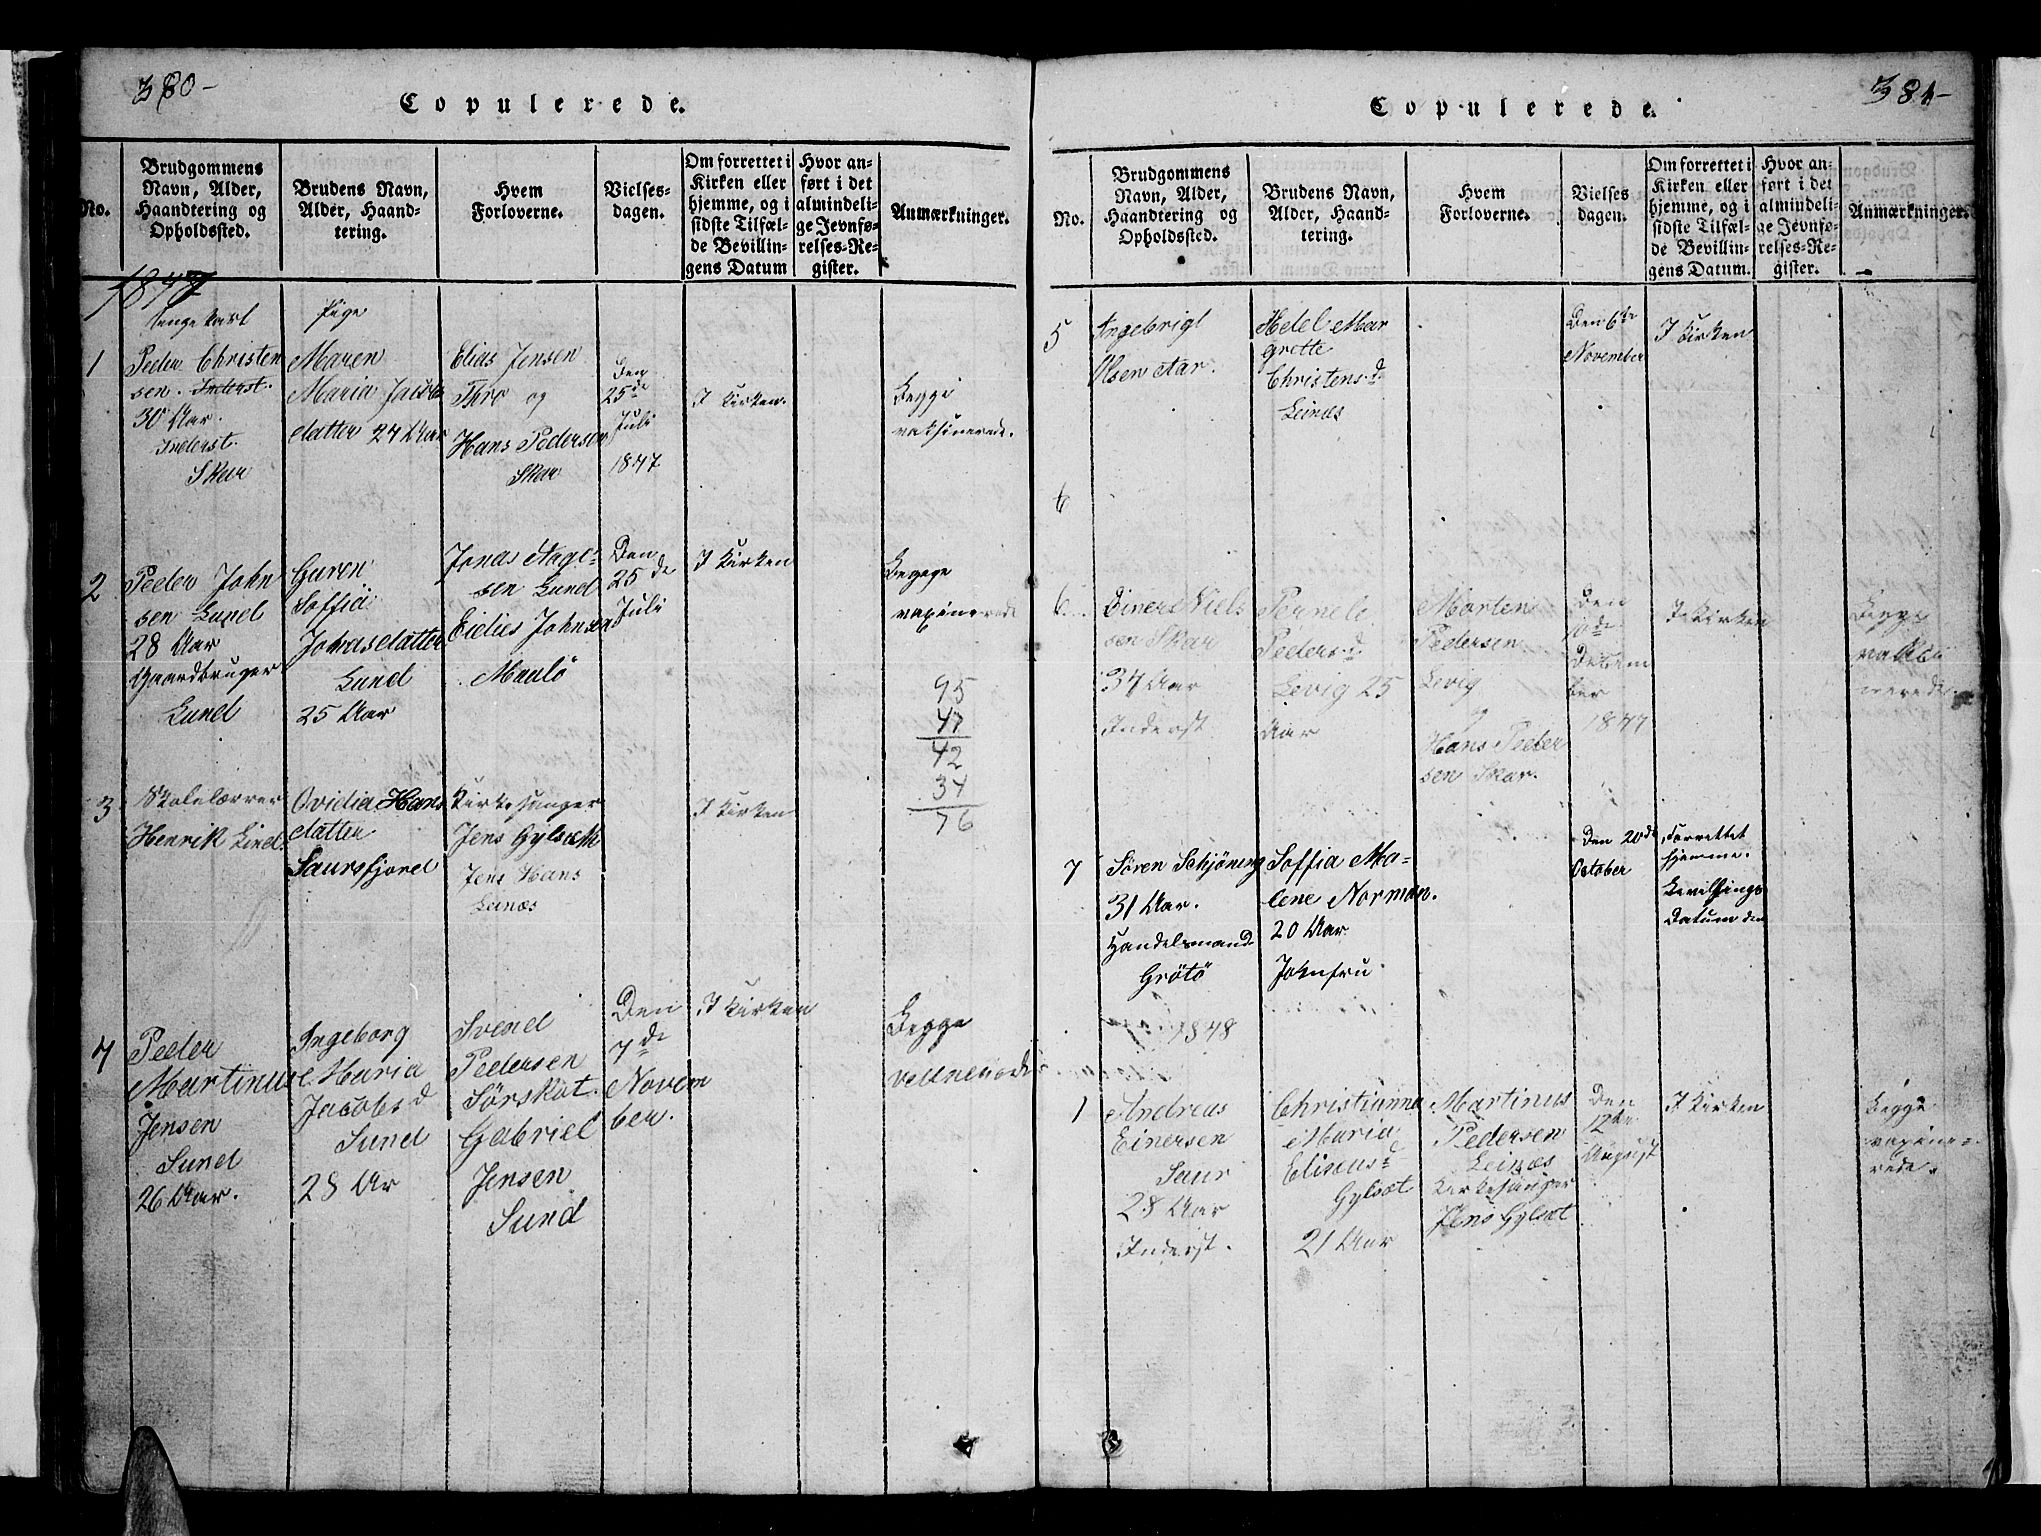 380-
Copulerede.
No.
Brudgommens
Navn, Alder,
Haandtering og
Opholdssted.
Brudens Navn,
Alder, Haand-
tering.
Hvem
Forloverne.
Vielses-
dagen.
Om forrettet i
Kirken eller
hjemme, og i
sidste Tilfæl-
de Bevillin-
gens Datum
Hvor an-
ført i det
almindeli-
ge Jevnfø-
relses-Re-
gister.
Anmærkninger.
1847
1
Ungekarl
Peder Christen
sen. Inderst.
30 Aar.
Inderst.
Skar
Pige
Maren
Maria Jacobs
datter 24 Aar
Elias Jensen
og
Hans Pedersen
Skar
Den
25de
Juli
1847
I Kirken.
Begge
vaksinerede.
2
Peder John
sen Lund
28 Aar
Gaardbruger
Lund
Guren
Soffia
Jonasdatter
Lund
25 Aar
Jonas Aage-
sen Lund
Eidies Johnsen
Maulö
Den
25de
Juli
I Kirken
Begge
vaxinerede
95
47
42
34
76
3
Skolelærer
Henrik Lind.
Ovidia Hans
datter
Saursfjord
Kirkesanger
Jens Gylset
Jens Hans
Leinæs
I Kirken
4
Peder
Martinus
Jensen
Sund
26 Aar.
Ingeborg
Maria
Jacobsd
Sund
28 Ar
Svend
Pedersen
Sörskot.
Gabriel
Jensen
Sund
Den
7de
Novem
ber.
I Kirken
Begge
381-
Copulerede.
No.
Brudgommens
Navn, Alder,
Haandtering og
Opholdssted.
Brudens Navn,
Alder, Haand-
tering.
Hvem
Forloverne.
Vielses
dagen.
Om forrettet i
Kirken eller
hjemme, og i
sidste Tilfæl-
de Bevillin-
gens Datum.
Hvor an-
ført i det
almindeli-
ge Jevnfø-
relses-Re-
gister.
Anmærkninger.
5
Ingebrigt
Olsen Aar.
Hetel Mar
Grette
Christensd
Leinæs
Den 6te
November
I Kirken
6
6
Einers Niels
sen Skar
34 Aar
Inderst
Pernele
Pedersd
Levig 25
Aar
Morten
Pedersen
Levig
og
Hans Peder
sen Skar.
Den
10de
Decem
ber
1847
I Kirken
Begge
vaksi
nerede
7
Sören Schjöning
31 Aar.
Handelsmand
Grötö
Soffia Ma-
lene Norman.
20 Aar.
Johmfru
Den 20de
October
Forrettet
hjemme.
Bevillings
Datum den
1848
1
Andreas
Einersen
Saur
28 Aar
Inderst.
Christianna
Maria
Eliseusd
Gylset
21 Aar
Martinus
Pedersen
Leinæs
Kirkesanger
Jens Gylset
Den
12te
August
I Kirken
Begge
vaxine-
rede.